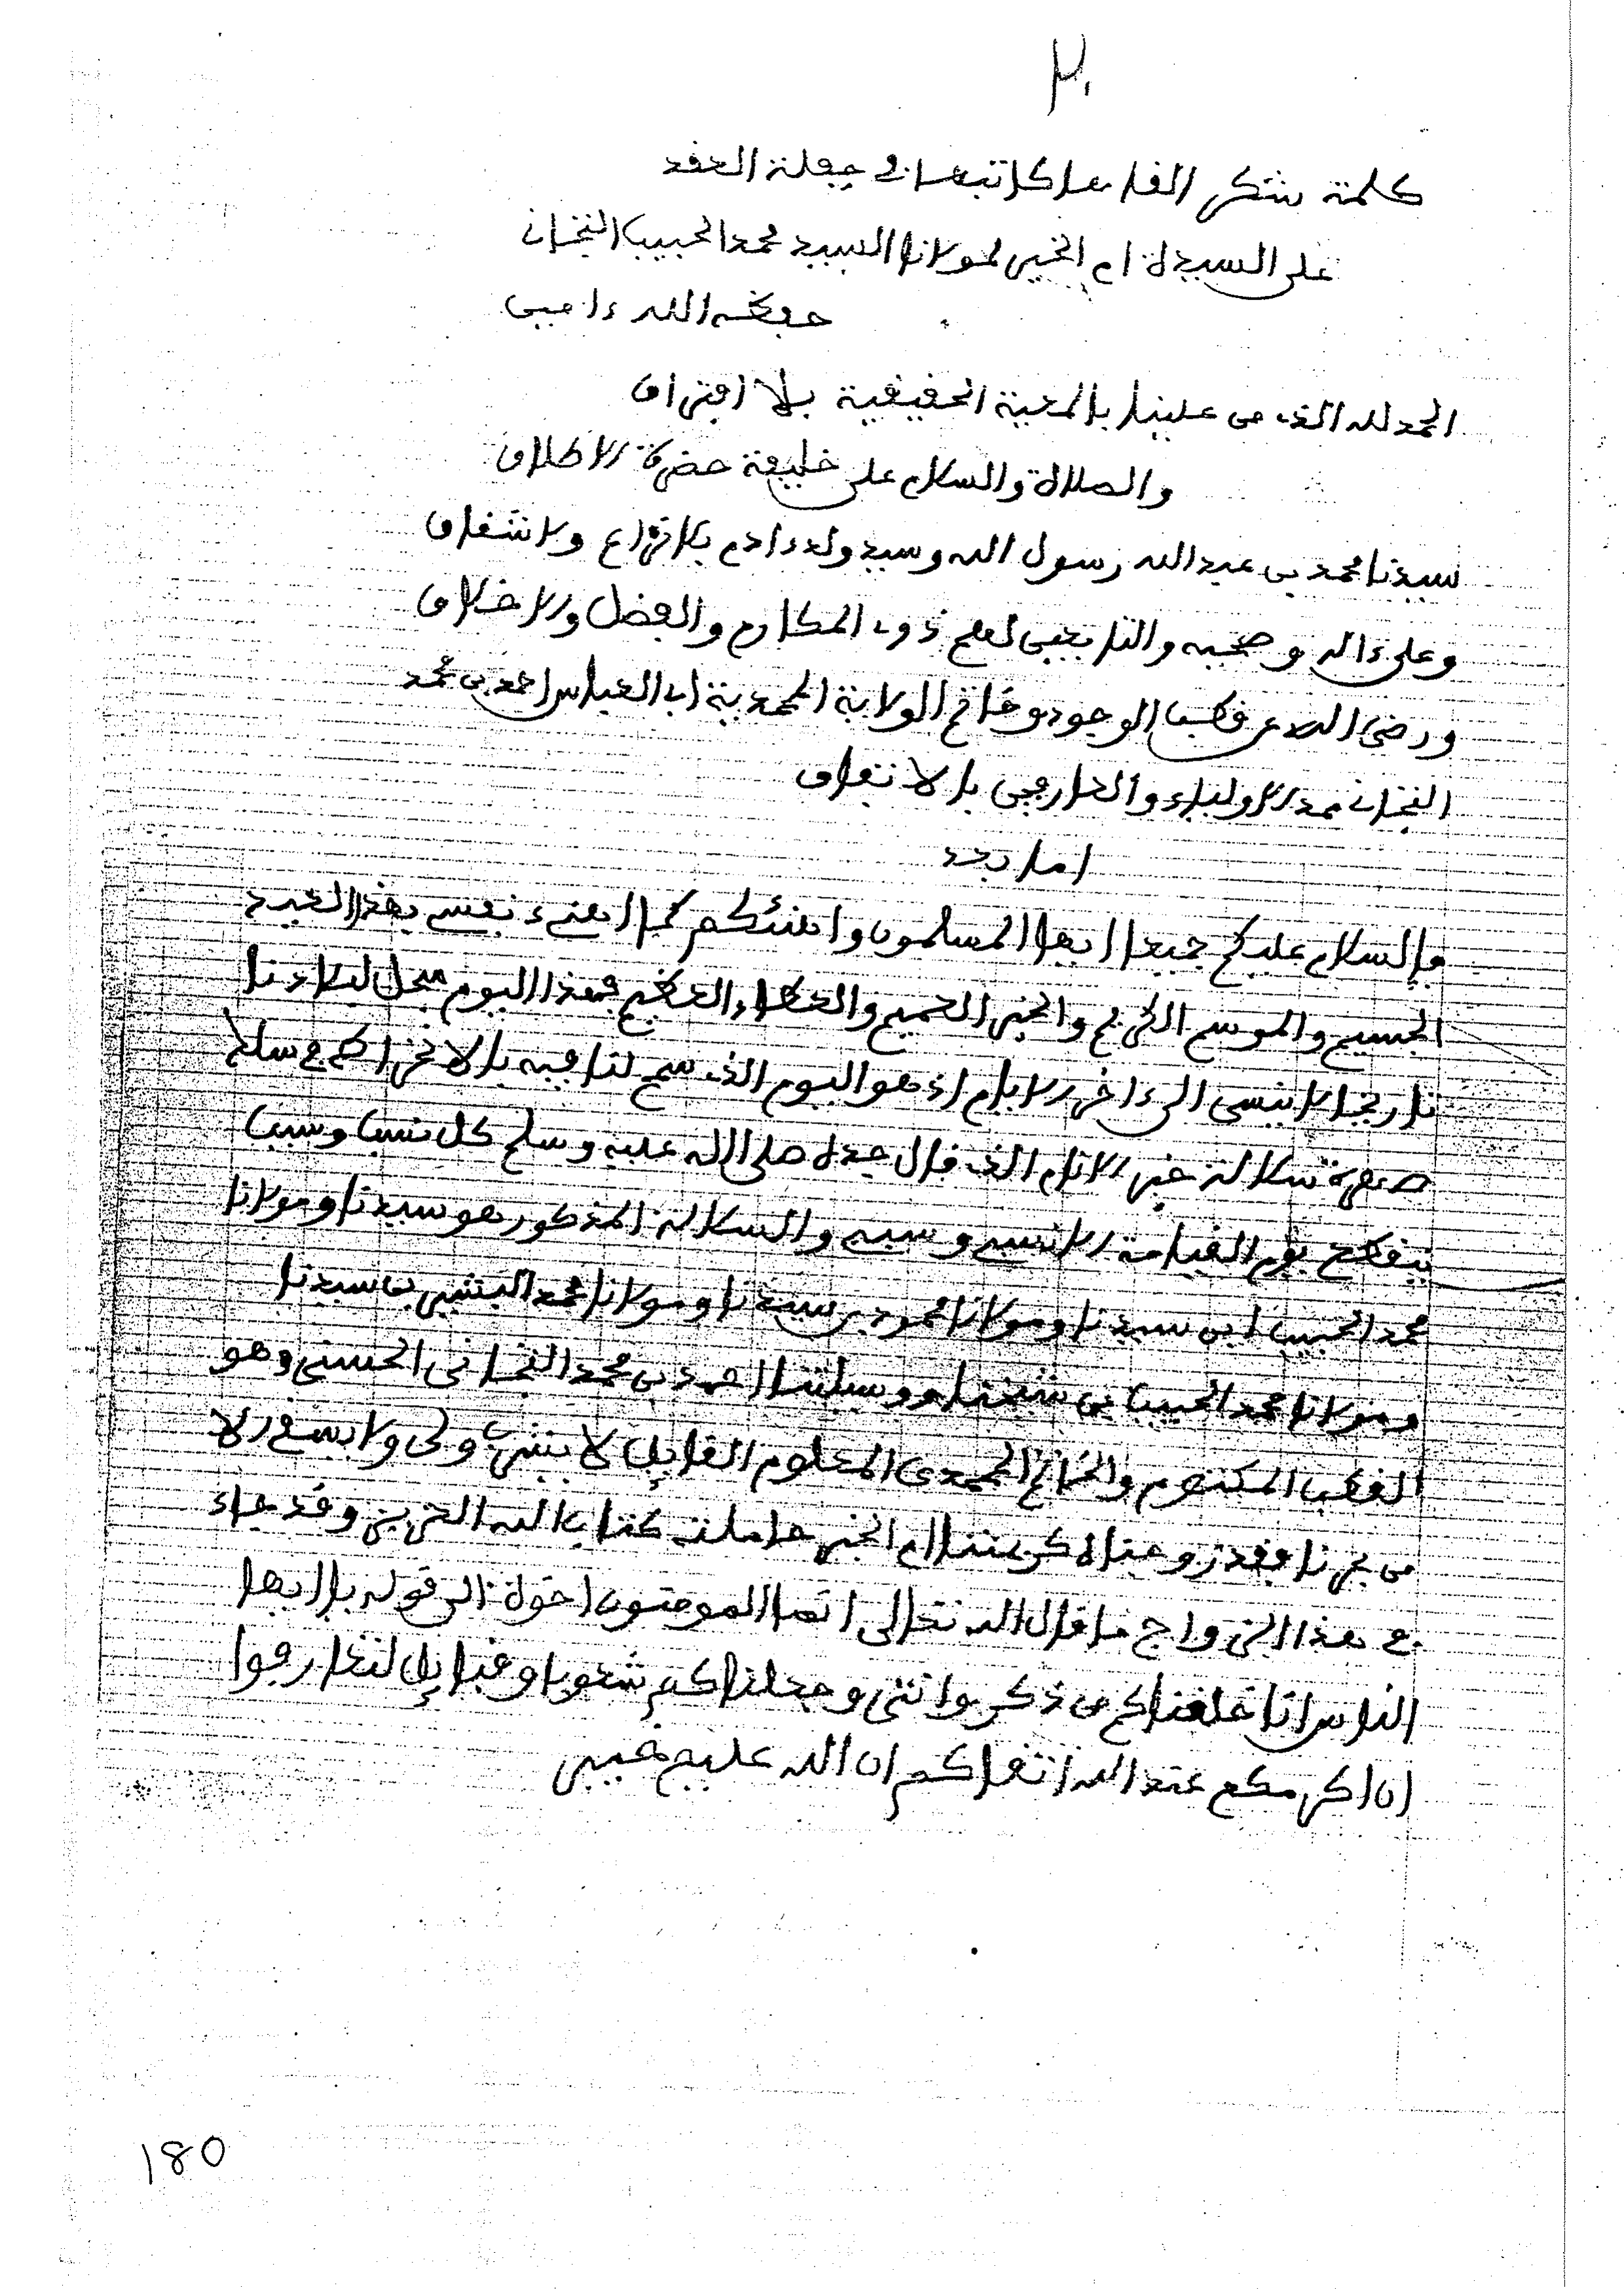 ٣٠
كلمة شكر القاها كاتبها في حفلة العقد
على السيدة ام الخير لمولانا السيد محمد الحبيب التجاني
حفظه الله ءامين
الحمد لله الذي من علينا بالمعية الحقيقية بلا افتراق
والصلاة والسلام على خليفة حضرة الاطلاق
سيدنا محمد بن عبد الله رسول الله وسيد ولد ءادم بلا نزاع ولا شقاق
وعلى ءاله وصحبه والتابعين لهم ذوي المكارم والفضل والاخلاق
ورضي الله عن قطب الوجود وخاتم الولاية المحمدية ابي العباس احمد بن محمد
التجاني ممد الاولياء والعارفين بالاتفاق
اما بعد
فالسلام عليكم جميعا ايها المسلمون واهنئكم كما اهنئ نفسي بهذا العيد
الجسيم والموسم الكريم والخير العميم والعطاء العظيم فهذا اليوم سجل لبلادنا
تاريخا لا ينسى الى ءاخر الايام اذ هو اليوم الذي سمح لنا فيه بالانخراط في سلك
صهرة سلالة خير الانام الذي قال جده صلى الله عليه وسلم كل نسب وسبب
ينقطع يوم القيامة الا نسبي وسببي والسلالة المذكور هو سيدنا ومولانا
محمد الحبيب ابن سيدنا ومولانا محمود بن سيدنا ومولانا محمد البشير بن سيدنا
ومولانا محمد الحبيب بن شيخنا ووسيلتنا احمد بن محمد التجاني الحسني وهو
القطب المكتوم والخاتم المحمدي المعلوم القايل لا يشرب ولي ولا يسقى الا
من بحرنا فقد زوجناه كريمتنا ام الخير حاملة كتاب الله العزيز وقد جاء
في هذا الزواج ما قال الله تعالى انما المومنون اخوة الى قوله يا ايها
الناس انا خلقناكم من ذكر وانثى وجعلناكم شعوبا وقبايل لتعارفوا
ان اكرمكم عند الله اتقاكم ان الله عليم خبير
180